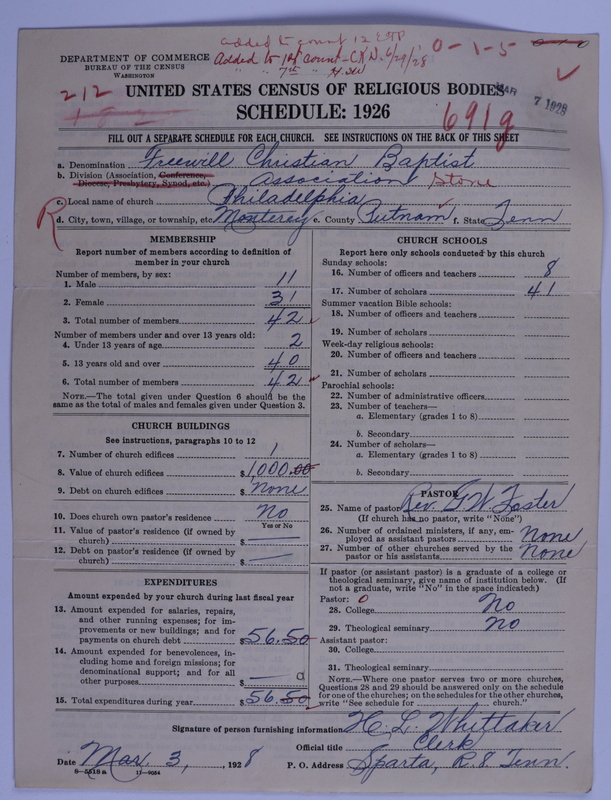 added to count 12 EHP
Added to 1st count - C.K.N. 6/29/28
" " 7th " H.W.
0-1-5
DEPARTMENT OF COMMERCE
BUREAU OF THE CENSUS
WASHINGTON
212
UNITED STATES CENSUS OF RELIGIOUS BODIES
MAR 7 1928
SCHEDULE: 1926
691g
FILL OUT A SEPARATE SCHEDULE FOR EACH CHURCH. SEE INSTRUCTIONS ON THE BACK OF THIS SHEET
a. Denomination Freewill Christian Baptist
b. Division (Association, Conference, Diocese, Presbytery, Synod, etc.) Association Stone
c. Local name of church Philadelphia
R
d. City, town, village, or township, etc. Monterey e. County Putnam f. State Tenn
MEMBERSHIP
Report number of members according to definition of member in your church
Number of members, by sex:
1. Male 11
2. Female 31
3. Total number of members 42
Number of members under and over 13 years old:
4. Under 13 years of age 2
5. 13 years old and over 40
6. Total number of members 42
NOTE.—The total given under Question 6 should be the same as the total of males and females given under Question 3.
CHURCH BUILDINGS
See instructions, paragraphs 10 to 12
7. Number of church edifices 1
8. Value of church edifices $1,000.00
9. Debt on church edifices $ None
10. Does church own pastor's residence No
Yes or No
11. Value of pastor's residence (if owned by church) $
12. Debt on pastor's residence (if owned by church) $
EXPENDITURES
Amount expended by your church during last fiscal year
13. Amount expended for salaries, repairs, and other running expenses; for improvements or new buildings; and for payments on church debt $56.50
14. Amount expended for benevolences, including home and foreign missions; for denominational support; and for all other purposes $
a
15. Total expenditures during year $56.50
CHURCH SCHOOLS
Report here only schools conducted by this church
Sunday schools:
16. Number of officers and teachers 8
17. Number of scholars 41
Summer vacation Bible schools:
18. Number of officers and teachers
19. Number of scholars
Week-day religious schools:
20. Number of officers and teachers
21. Number of scholars
Parochial schools:
22. Number of administrative officers
23. Number of teachers—
a. Elementary (grades 1 to 8)
b. Secondary
24. Number of scholars—
a. Elementary (grades 1 to 8)
b. Secondary
PASTOR
25. Name of pastor Rev. G W. Foster
(If church has no pastor, write "None")
26. Number of ordained ministers, if any, employed as assistant pastors None
27. Number of other churches served by the pastor or his assistants None
If pastor (or assistant pastor) is a graduate of a college or theological seminary, give name of institution below. (If not a graduate, write "No" in the space indicated)
Pastor: 0
28. College No
29. Theological seminary No
Assistant pastor:
30. College
31. Theological seminary
NOTE.—Where one pastor serves two or more churches, Questions 28 and 29 should be answered only on the schedule for one of the churches; on the schedules for the other churches, write "See schedule for church."
Signature of person furnishing information H. L. Whittaker
Official title Clerk
Date Mar. 3, 1928
P. O. Address Sparta, R. 8. Tenn.
8-5518 a 11-9054